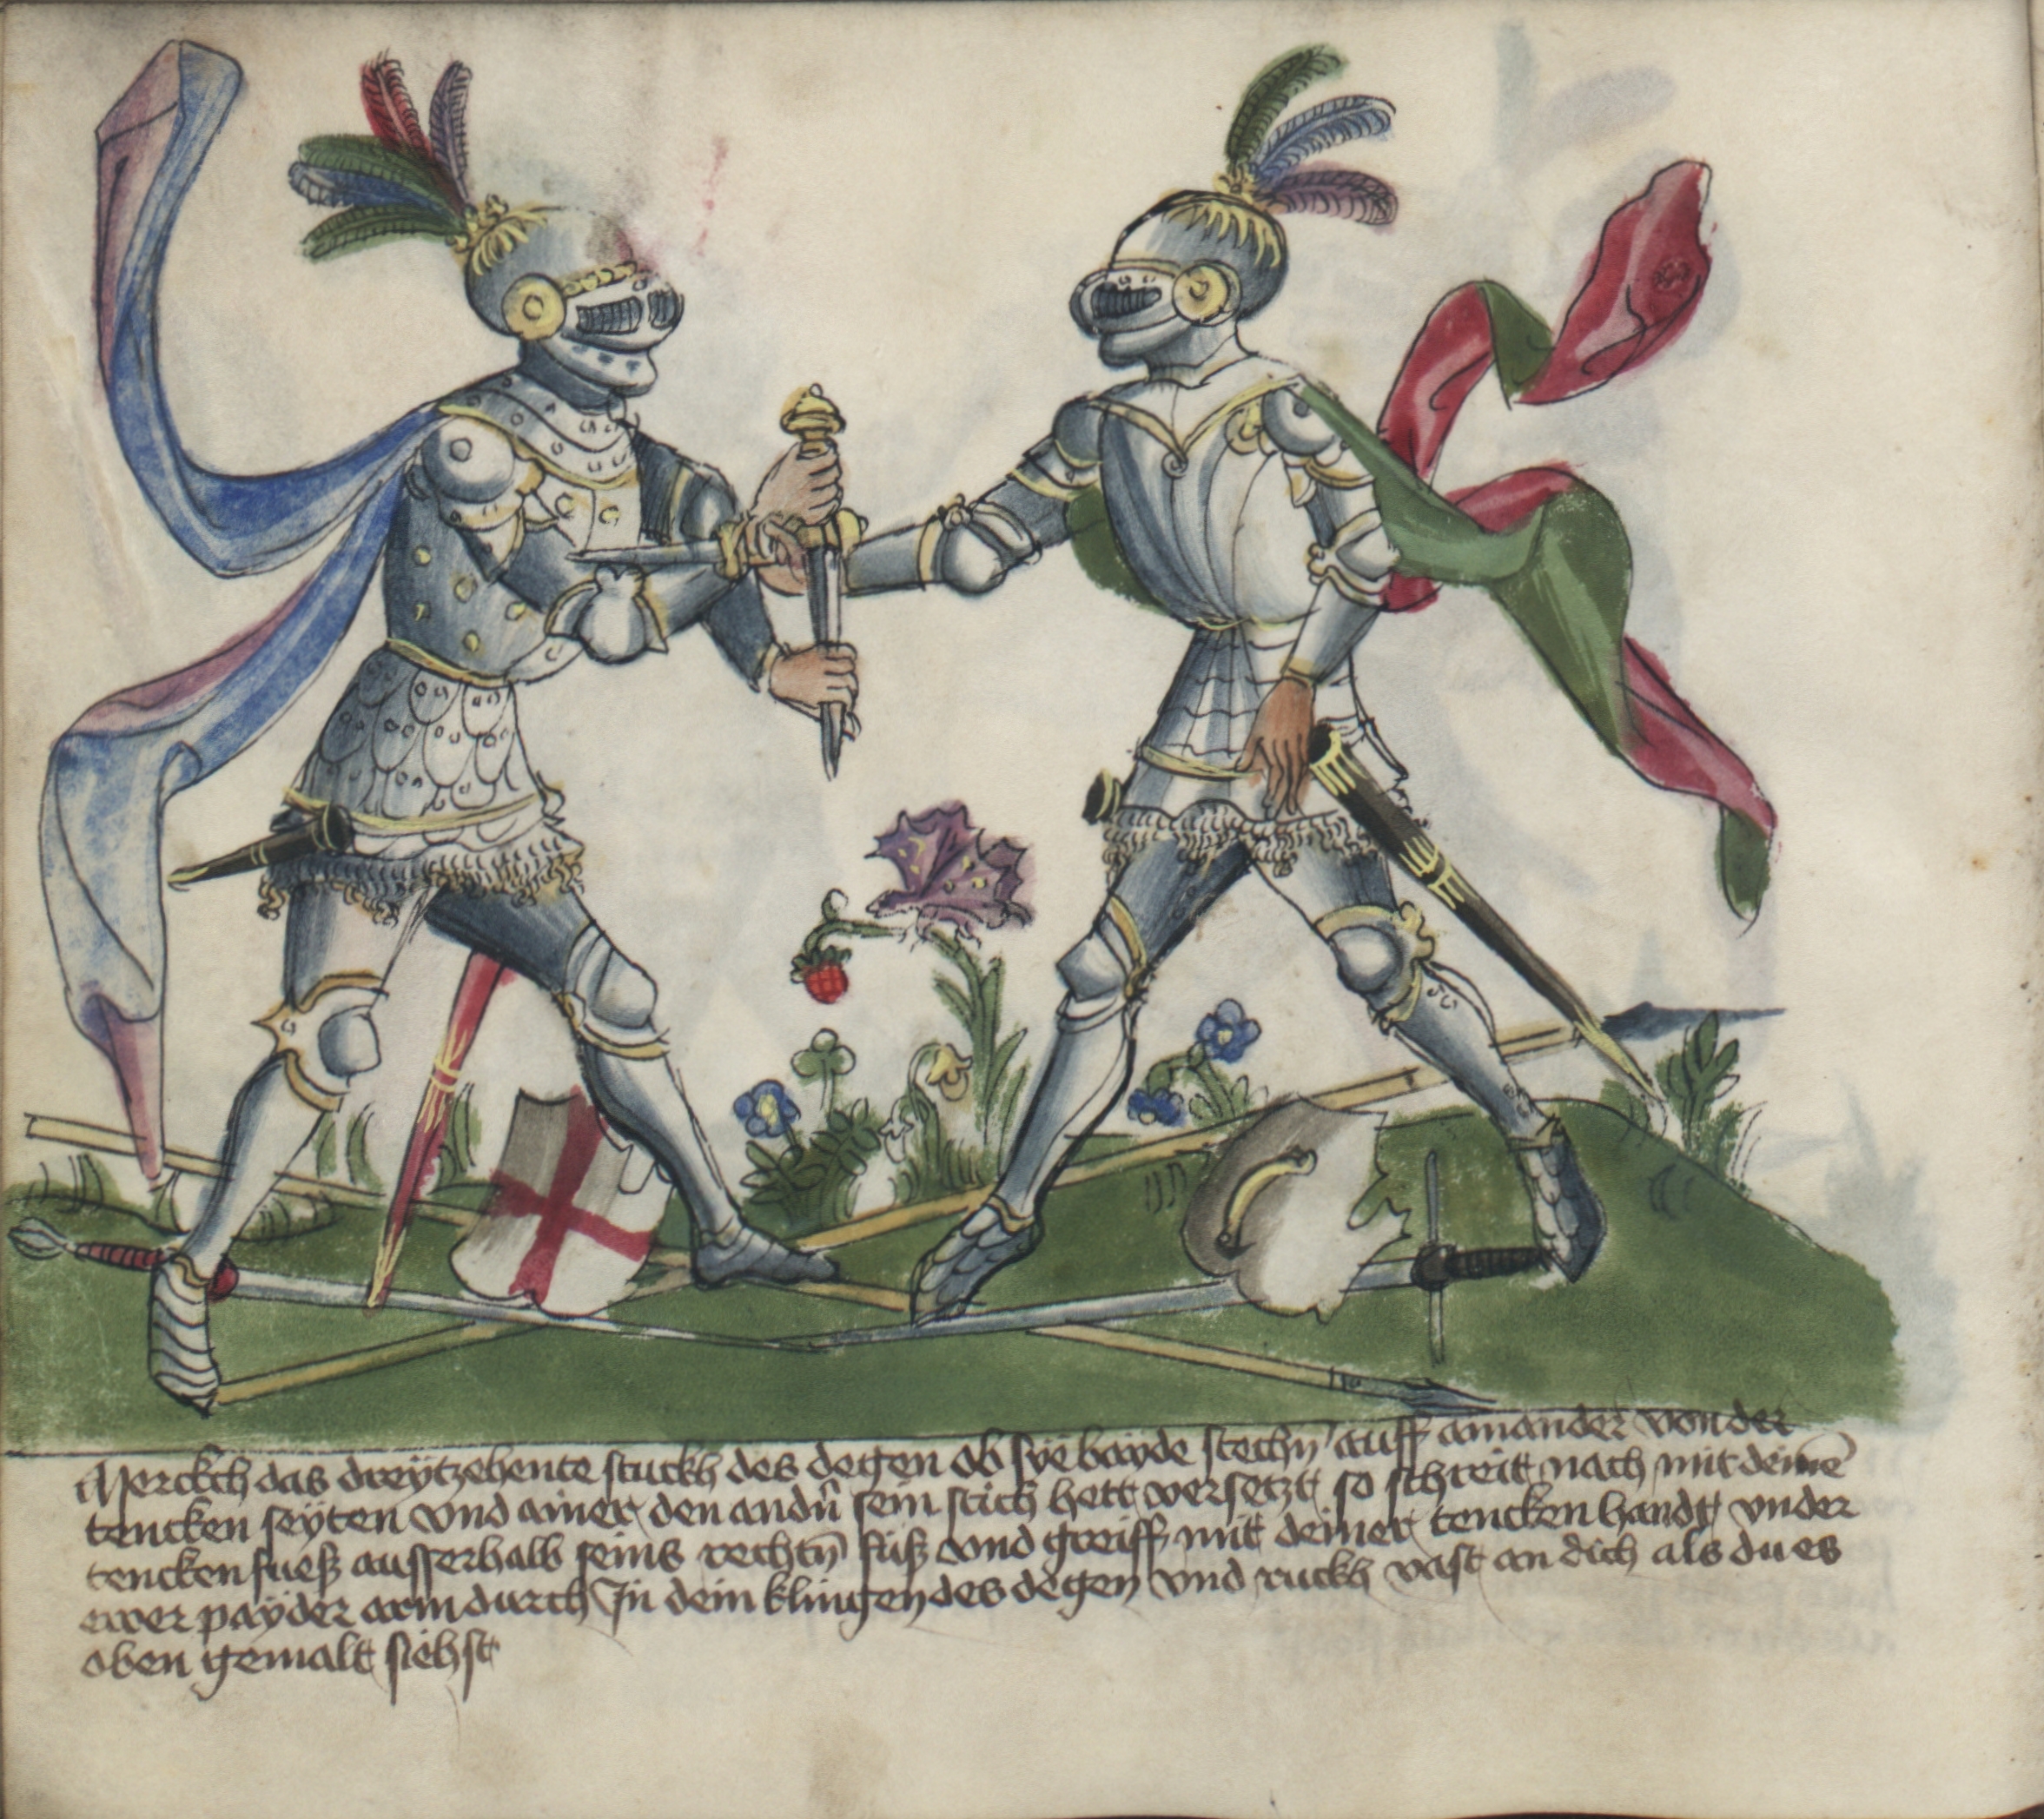 Merckch das dreÿtzehente stuckh des degen ob sÿe baÿde stechn̄ auff ainander von der
tencken seÿten vnd ainer den andn̄ sein stich hett versetzt so schreit nach mit deinē
tencken fueß ausserhalb seins rechtn̄ fuß vnd greiff mit deiner tencken handt vnder
ewer paÿder arm durch In dein klingen des degen vnd ruckh vast an dich als du es
oben gemalt siehst